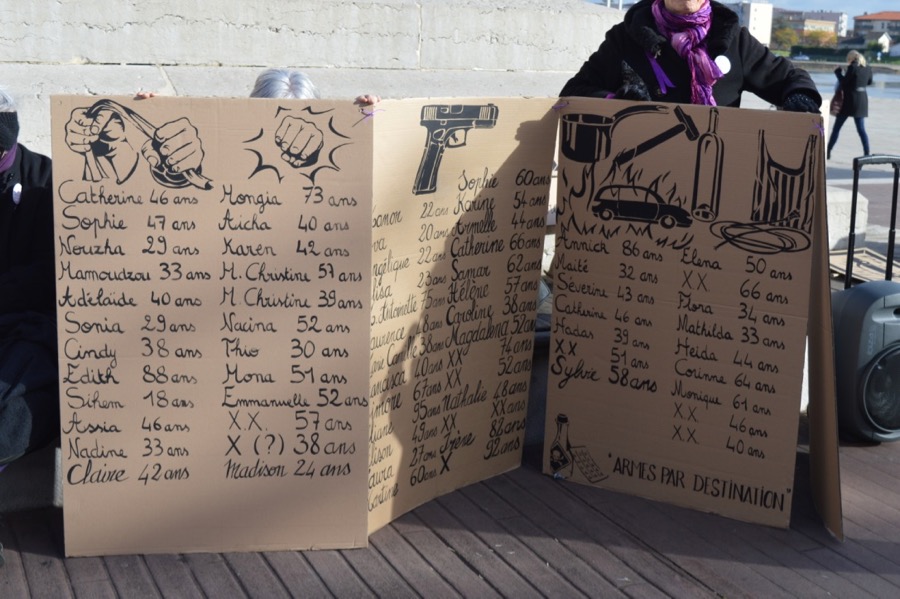 Catherine 46 ans
Sophie 47 ans
Nouzha 29 ans
Mamoudzou 33 ans
Adélaïde 40 ans
Sonia 29 ans
Cindy 38 ans
Edith 88 ans
Sihem 18 ans
Assia 46 ans
Nadine 33 ans
Claire 42 ans
Mongia 73 ans
Aicha 40 ans
Karen 42 ans
M. Christine 57 ans
M. Christine 39 ans
Nacina 52 ans
Thio 30 ans
Mona 51 ans
Emmanuelle 52 ans
X.X. 57 ans
X (?) 38 ans
Madison 24 ans
22 ans
20 ans
22 ans
23 ans
Antoinette 75 ans
ans
38 ans
40 ans
67 ans
95 ans
49 ans
27 ans
60 ans
Sophie 60 ans
Karine 54 ans
Armelle 44 ans
Catherine 66 ans
Samar 62 ans
Hélène 57 ans
Caroline 38 ans
Magdalena 52 ans
XX 74 ans
XX 52 ans
Nathalie 48 ans
XX XX ans
Irène 82 ans
X 92 ans
Annick 86 ans
Maïté 32 ans
Séverine 43 ans
Catherine 46 ans
Hadas 39 ans
XX 51 ans
Sylvie 58 ans
Elena 50 ans
XX 66 ans
Flora 34 ans
Mathilda 33 ans
Heida 44 ans
Corinne 64 ans
Monique 61 ans
XX 46 ans
XX 40 ans
"ARMES PAR DESTINATION"